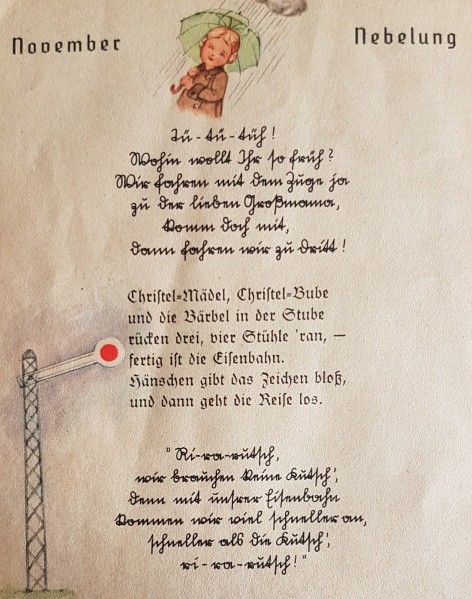 November
Nebelung
Tü-tü-tüh!
Wohin wollt Ihr so früh?
Wir fahren mit dem Zuge ja
zu der lieben Großmama,
komm doch mit,
dann fahren wir zu dritt!
Christel=Mädel, Christel=Bube
und die Bärbel in der Stube
rücken drei, vier Stühle 'ran, —
fertig ist die Eisenbahn.
Hänschen gibt das Zeichen bloß,
und dann geht die Reise los.
"Ri-ra-rutsch,
wir brauchen keine Kutsch',
denn mit unsrer Eisenbahn
kommen wir viel schneller an,
schneller als die Kutsch',
ri-ra-rutsch!"